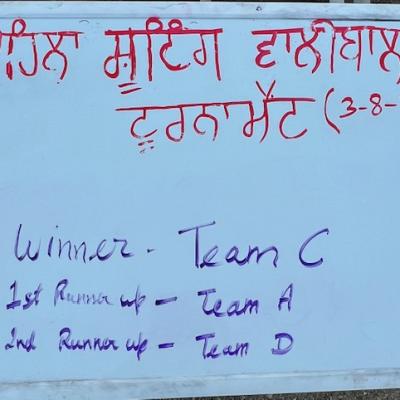 ਪਹਿਲਾ ਸ਼ੂਟਿੰਗ ਵਾਲੀਬਾਲ
ਟੂਰਨਾਮੈਂਟ (3-8-
Winner - Team C
1st Runner up - Team A
2nd Runner up - Team D